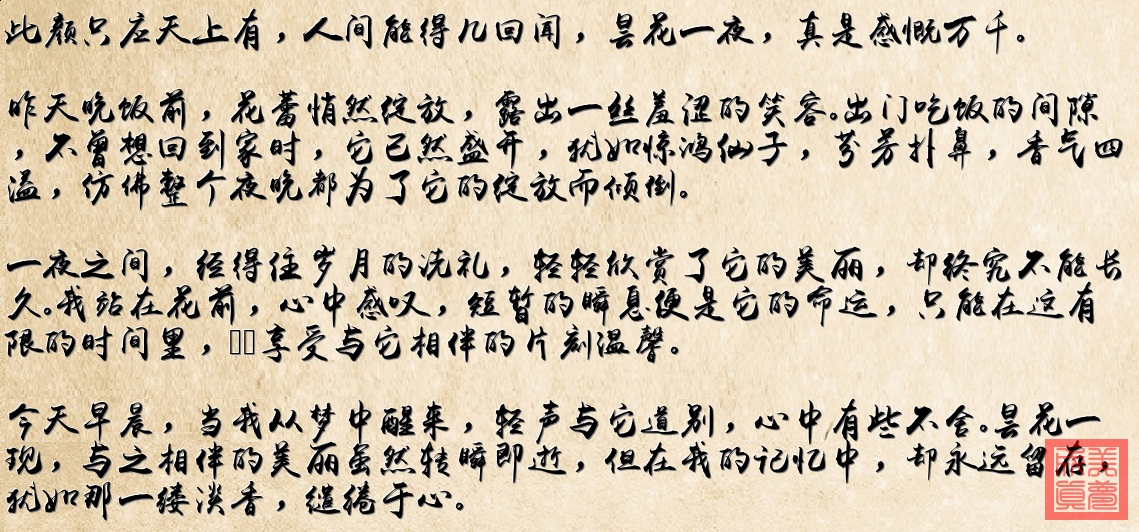 此颜只应天上有，人间能得几回闻，昙花一夜，真是感慨万千。
昨天晚饭前，花蕾悄然绽放，露出一丝羞涩的笑容。出门吃饭的间隙
，不曾想回到家时，它已然盛开，犹如惊鸿仙子，芬芳扑鼻，香气四
溢，仿佛整个夜晚都为了它的绽放而倾倒。
一夜之间，经得住岁月的洗礼，轻轻欣赏了它的美丽，却终究不能长
久。我站在花前，心中感叹，短暂的瞬息便是它的命运，只能在这有
限的时间里，□□享受与它相伴的片刻温馨。
今天早晨，当我从梦中醒来，轻声与它道别，心中有些不舍。昙花一
现，与之相伴的美丽虽然转瞬即逝，但在我的记忆中，却永远留存，
犹如那一缕淡香，缱绻于心。